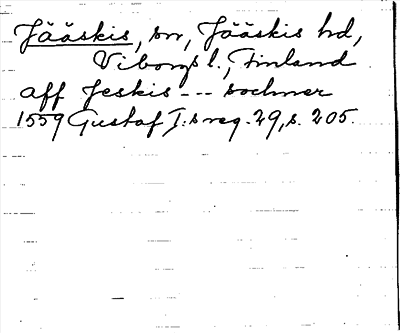 Jääskis, sn, Jääskis hd,
Viborgs l., Finland
aff Jeskis --- sochner
1559 Gustaf I:s reg. 29, s. 205.